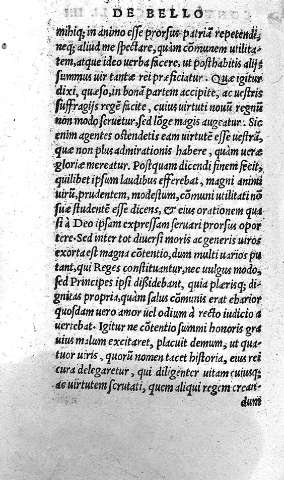 DE BELLO
mihiq; in animo esse prorsus patriã repetendi,
neq; aliud me spectare, quàm cõmunem utilita-
tem, atque ideo uerba facere, ut posthabitis alijs
summus uir tantæ rei præficiatur. Quæ igitur
dixi, quæso, in bonã partem accipite, ac uestris
suffragijs regẽ facite, cuius uirtuti nouũ regnũ
non modo seruetur, sed lõge magis augeatur. Sic
enim agentes ostendetis eam uirtutẽ esse uestrã,
quæ non plus admirationis habere, quàm ueræ
gloriæ mereatur. Postquam dicendi finem fecit,
quilibet ipsum laudibus efferebat, magni animi
uirũ, prudentem, modestum, cõmuni utilitati nõ
suæ studentẽ esse dicens, & eius orationem qua
si à Deo ipsam expressam seruari prorsus opor
tere. Sed inter tot diuersi moris ac generis uiros
exorta est magna cõtentio, dum multi uarios pu
tant, qui Reges constituantur, nec uulgus modo,
sed Principes ipsi dißidebant, quia plærisq; di-
gnitas propria, quàm salus cõmunis erat charior
quosdam uero amor uel odium à recto iudicio a
uertebat. Igitur ne cõtentio summi honoris gra
uius malum excitaret, placuit demum, ut qua-
tuor uiris, quorũ nomen tacet historia, eius rei
cura delegaretur, qui diligenter uitam cuiusq;
ac uirtutem scrutati, quem aliqui regem crean-
dum